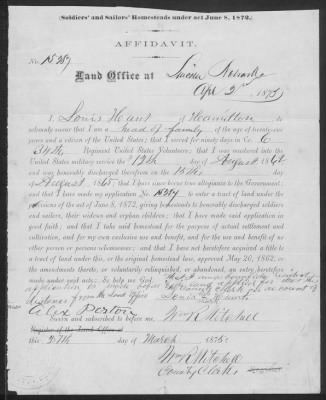 (Soldiers' and Sailors' Homesteads under act June 8, 1872.)
AFFIDAVIT.
No. 15357
Land Office at Lincoln Nebraska
Apr 2 1875
I, Louis Hart, of Hamilton, do
solemnly swear that I am a head of family, of the age of twenty-one
years and a citizen of the United States; that I served for ninety days in Co. C
34th, Regiment United States Volunteers; that I was mustered into the
United States military service the 12th day of August 1862
and was honorably discharged therefrom on the 15th
day of August, 1865; that I have since borne true allegiance to the Government;
and that I have made my application No. 15357 to enter a tract of land under the
provisions of the act of June 8, 1872, giving homesteads to honorably discharged soldiers
and sailors, their widows and orphan children; that I have made said application in
good faith; and that I take said homestead for the purpose of actual settlement and
cultivation, and for my own exclusive use and benefit, and for the use and benefit of no
other person or persons whomsoever; and that I have not heretofore acquired a title to
a tract of land under this, or the original homestead law, approved May 20, 1862, or
the amendments thereto, or voluntarily relinquished, or abandoned, an entry heretofore
made under said acts; So help me God
distance from the Land Office
Louis Hart
Alex Paxton Wm R Mitchell
Sworn and subscribed to before me,
Register of the Land Office at
this 27th day of March 1875
Wm R Mitchell
County Clerk